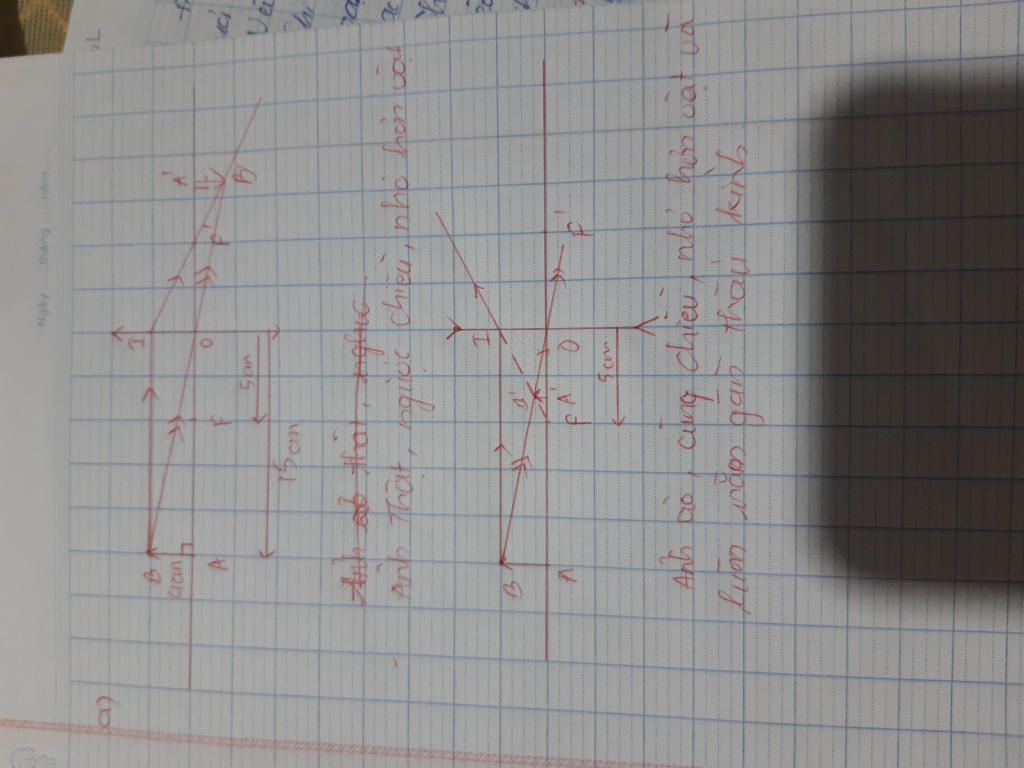 Ngày ... tháng ... năm ...
a)
B
I
4cm
A
F
O
F'
A'
B'
5cm
15cm
Ảnh ảo thật, ngược
Ảnh thật, ngược chiều, nhỏ hơn vật
B
I
B'
A
F
A'
O
F'
5cm
Ảnh ảo, cùng chiều, nhỏ hơn vật và
luôn nằm gần thấu kính